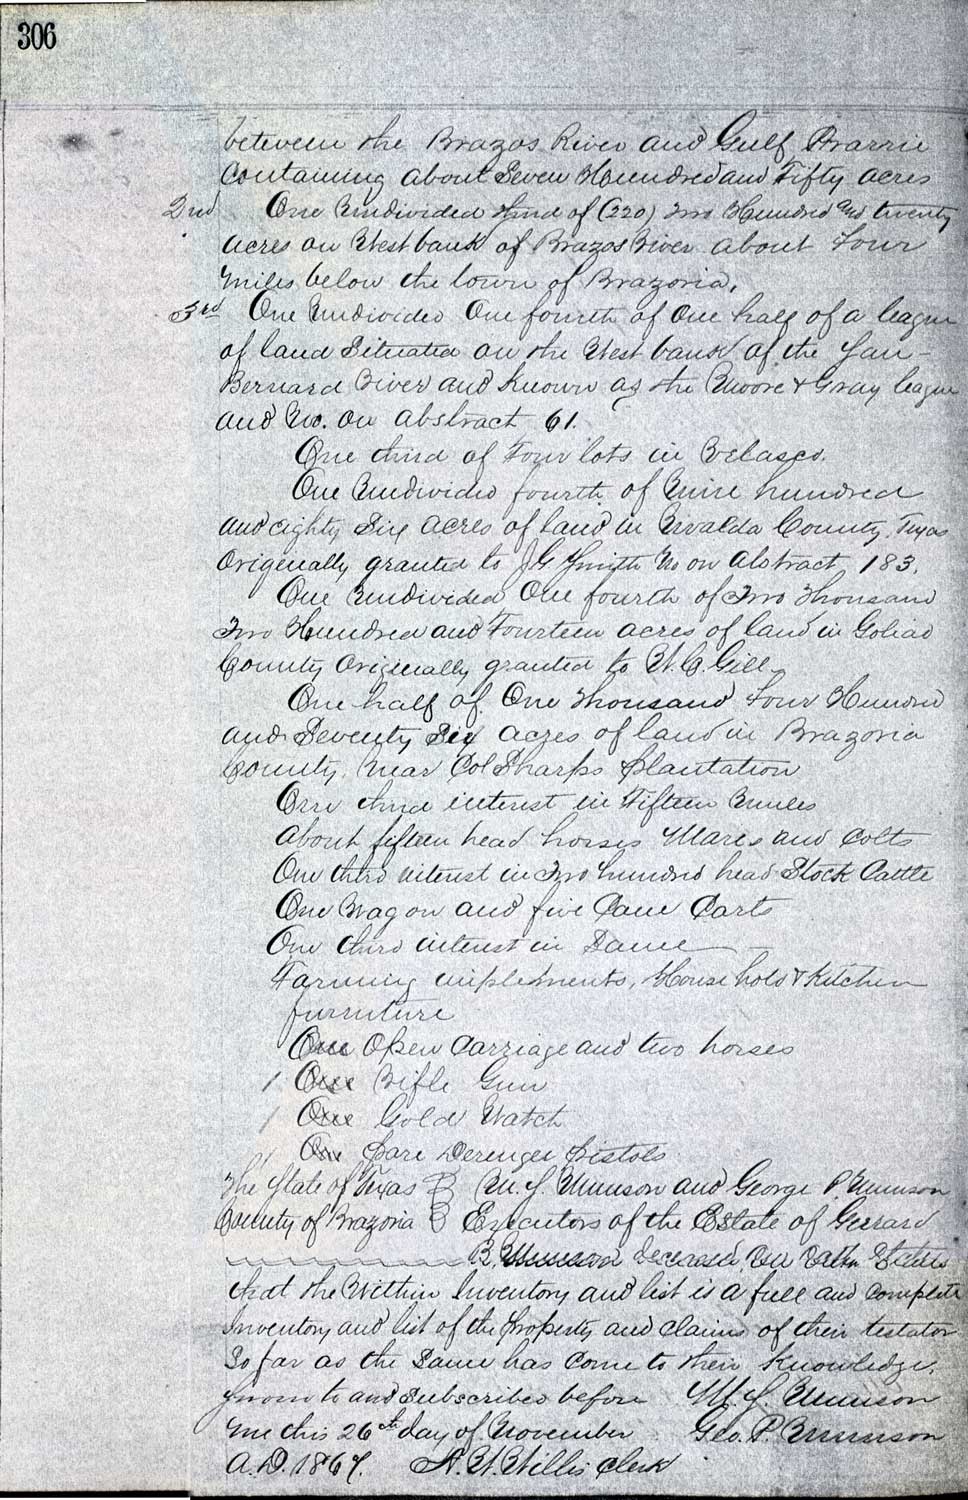 306
between the Brazos River and Gulf Prarrie
Containing about Seven Hundred and Fifty acres
2nd One Undivided third of (220) Two Hundred and twenty
acres on West bank of Brazos River about Four
Miles below the town of Brazoria.
3rd One Undivided One fourth of One half of a league
of land Situated on the West bank of the San-
Bernard River and Known as the Moore & Gray league
and No. on abstract 61.
One third of Four lots in Velasco.
One Undivided fourth of Nine hundred
and eighty Six acres of land in Uvalda County, Texas
Originally granted to J G Smith No on Abstract 183.
One Undivided One fourth of Two Thousand
Two Hundred and Fourteen acres of land in Goliad
County Originally granted to W. C. Gill
One half of One Thousand Four Hundred
and Seventy Six acres of land in Brazoria
County, Near Col Sharps Plantation
One third interest in Fifteen Mules
About fifteen head horses Mares and Colts
One third interest in Two hundred head Stock Cattle
One Wagon and five Cane Carts
One third interest in Same
Farming implements, House hold & Kitchen
furniture
One Open Carriage and two horses
1 One Rifle Gun
1 One Gold Watch
1 One pare Derenger Pistols
The State of Texas } M. S. Munson and George P. Munson
County of Brazoria } Executors of the Estate of Gerrard
B. Munson deceased, on Oath States
that the Within Inventory and list is a full and Complete
Inventory and list of the Property and Claims of their testator
So far as the Same has Come to their Knowledge.
Sworn to and Subscribed before M. S. Munson
me this 26th day of November Geo. P. Munson
A.D. 1867. A. W. Willis Clerk